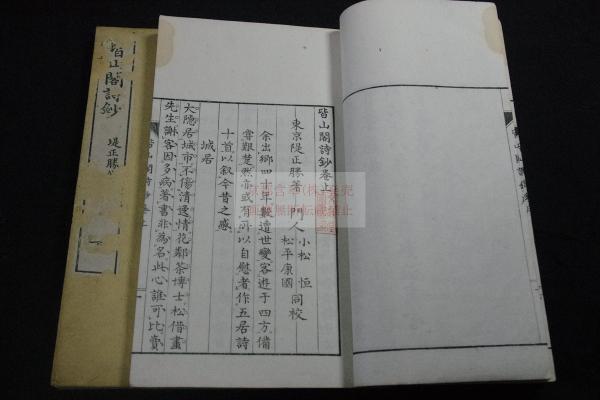 皆山閣詩鈔
堤正勝
皆山閣詩鈔卷上
東京 堤正勝著 門人 小松恒 同校
松平康國
余出鄉四十年數遭世變客遊于四方備
嘗艱楚然亦或有可以自慰者作五居詩
十首以叙今昔之感
城居
大隱居城市不傷清逸情花鄰茶博士松借畫
先生謝客因多病著書非為名此心誰可比賣
皆山閣詩鈔卷上